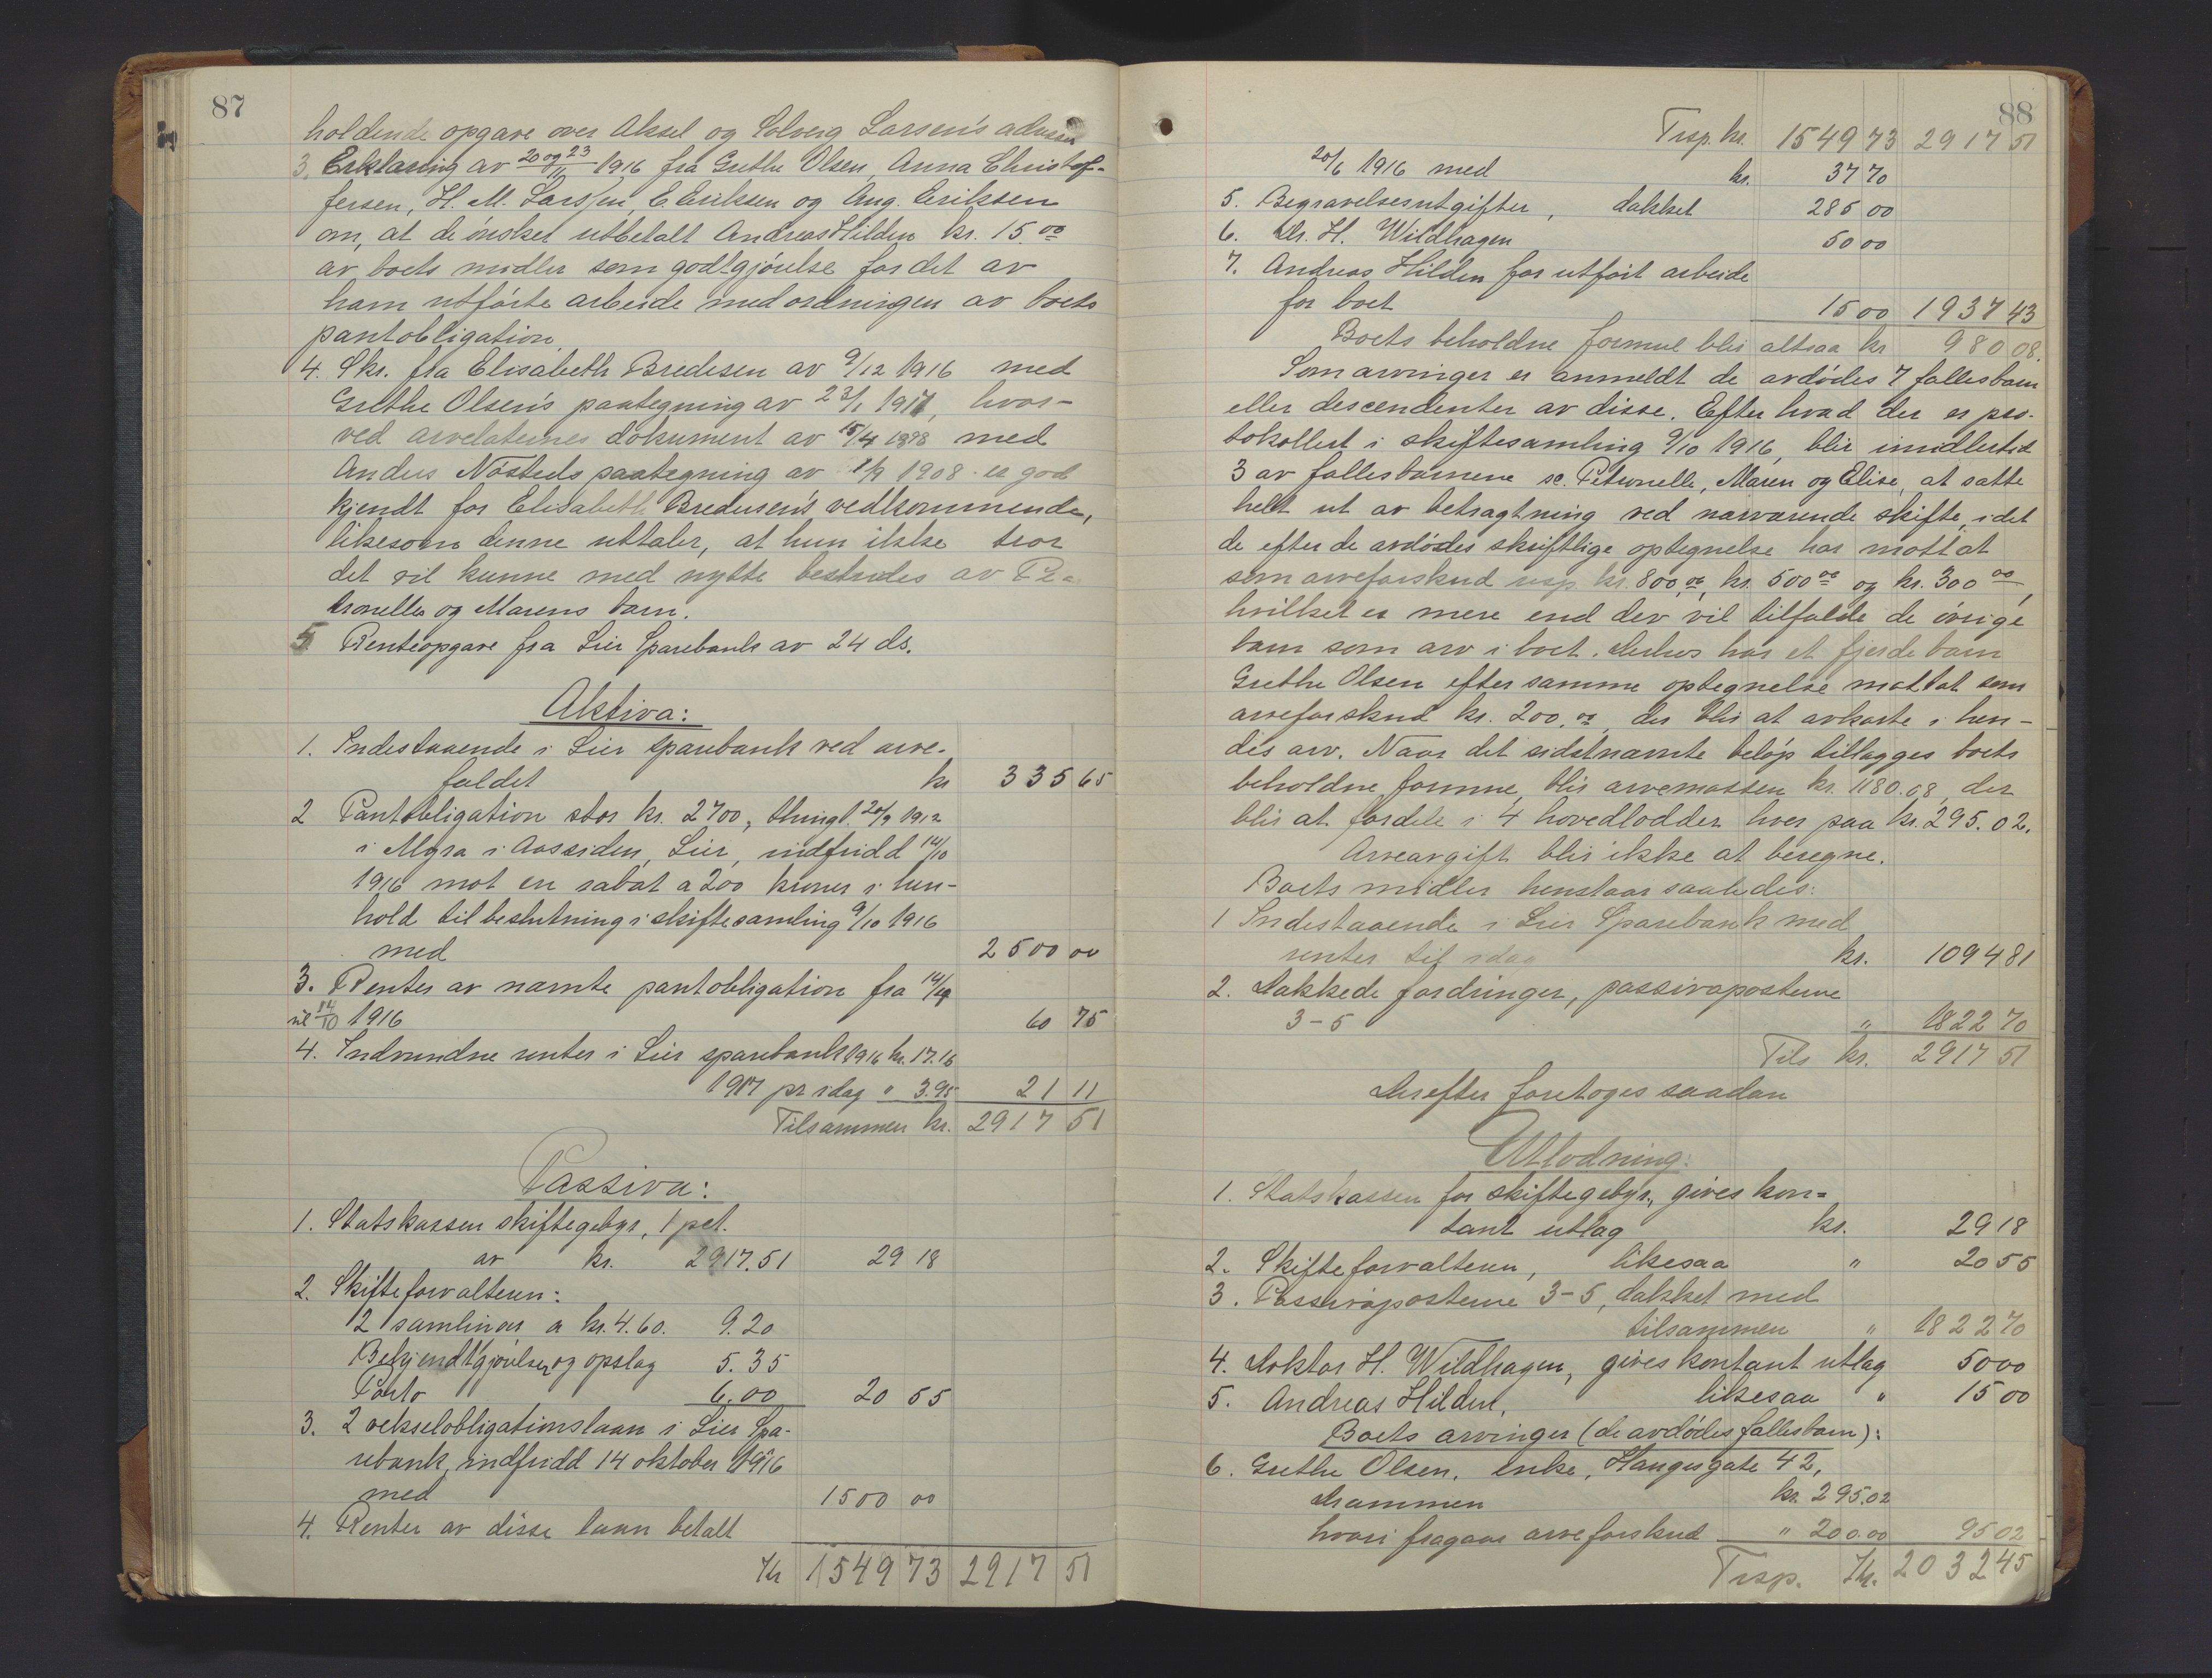 87
holdende opgave over Aksel og Solveig Larsen's adresse
3. Erklæring av 20 og 23/11 1916 fra Grethe Olsen, Anna Christof-
fersen, H. M. Larsen, E. Eriksen og Aug. Eriksen
om, at de ønsket utbetalt Andreas Hilden kr. 15.00
av boets midler som godtgjørelse for det av
ham utførte arbeide med ordningen av boets
pantobligation.
4. Skr. fra Elisabeth Bredesen av 9/12 1916 med
Grethe Olsen's paategning av 23/1 1917, hvor-
ved arvelaternes dokument av 15/4 1898 med
Anders Nøsteds paategning av 1/9 1908 er god
kjendt for Elisabeth Bredesen's vedkommende,
likesom denne uttaler, at hun ikke tror
det vil kunne med nytte bestrides av Pe
tronelles og Marens barn.
5 Renteopgave fra Lier Sparebank av 24 ds.
Aktiva:
1. Indestaaende i Lier sparebank ved arve-
faldet kr 335 65
2 Pantobligation stor kr. 2700, thingl. 20/9 1912
i Myra i Aassiden, Lier, indfridd 14/10
1916 mot en rabat a 200 kroner i hen-
hold til beslutning i skiftesamling 9/10 1916
med 2500 00
3. Renter av nævnte pantobligation fra 14/4
til 14/10 1916 60 75
4. Indvundne renter i Lier sparebank 1916 kr. 17.16
1917 pr idag " 3.95 21 11
Tilsammen kr. 2917 51
Passiva:
1. Statskassen skiftegebyr, 1 pct.
av kr. 2917.51 29 18
2. Skifteforvalteren:
2 samlinger a kr. 4.60. 9.20
Bekjendtgjørelser og opslag 5.35
Porto 6.00 20 55
3. 2 vekselobligationslaan i Lier Spa-
rebank, indfridd 14 oktober 1916
med 1500 00
4. Renter av disse laan betalt
Kr 1549 73 2917 51
88
Trsp. kr. 1549 73 2917 51
20/6 1916 med kr. 37 70
5. Begravelsesutgifter, dækket 285 00
6. Dr. H. Wildhagen 50 00
7. Andreas Hilden for utført arbeide
for boet 15 00 1937 43
Boets beholdne formue blir altsaa kr 980 08.
Som arvinger er anmeldt de avdødes 7 fællesbarn
eller descendenter av disse. Efter hvad der er pro-
tokollert i skiftesamling 9/10 1916, blir imidlertid
3 av fællesbarnene sc. Petronelle, Maren og Elise, at sætte
helt ut av betragtning ved nærværende skifte, idet
de efter de avdødes skriftlige optegnelse har mottat
som arveforskud resp. kr. 800,00, kr. 500 00 og kr. 300 00,
hvilket er mere end der vil tilfalde de øvrige
barn som arv i boet. Derhos har et fjerde barn
Grethe Olsen efter samme optegnelse mottat som
arveforskud kr. 200.00, der blir at avkorte i hen-
des arv. Naar det sidstnævnte beløp tillægges boets
beholdne formue, blir arvemassen kr. 1180.08, der
blir at fordele i 4 hovedlodder hver paa kr. 295.02.
Arveavgift blir ikke at beregne.
Boets midler henstaar saaledes:
1 Indestaaende i Lier Sparebank med
renter til idag kr. 1094 81
2. Dækkede fordringer, passivaposterne
3-5 " 1822 70
Tils kr. 2917 51
Derefter foretoges saadan
Utlodning:
1. Statskassen for skiftegebyr, gives kon-
tant utlag kr. 29 18
2. Skifteforvalteren, likesaa " 20 55
3. Passivaposterne 3-5, dækket med
tilsammen " 1822 70
4. Doktor H. Wildhagen, gives kontant utlag 50 00
5. Andreas Hilden, likesaa " 15 00
Boets arvinger (de avdødes fællesbarn):
6. Grethe Olsen, enke, Haugesgate 42,
Drammen kr. 295.02
hvori fragaar arveforskud " 200.00 95 02
Trsp. Kr. 2032 45